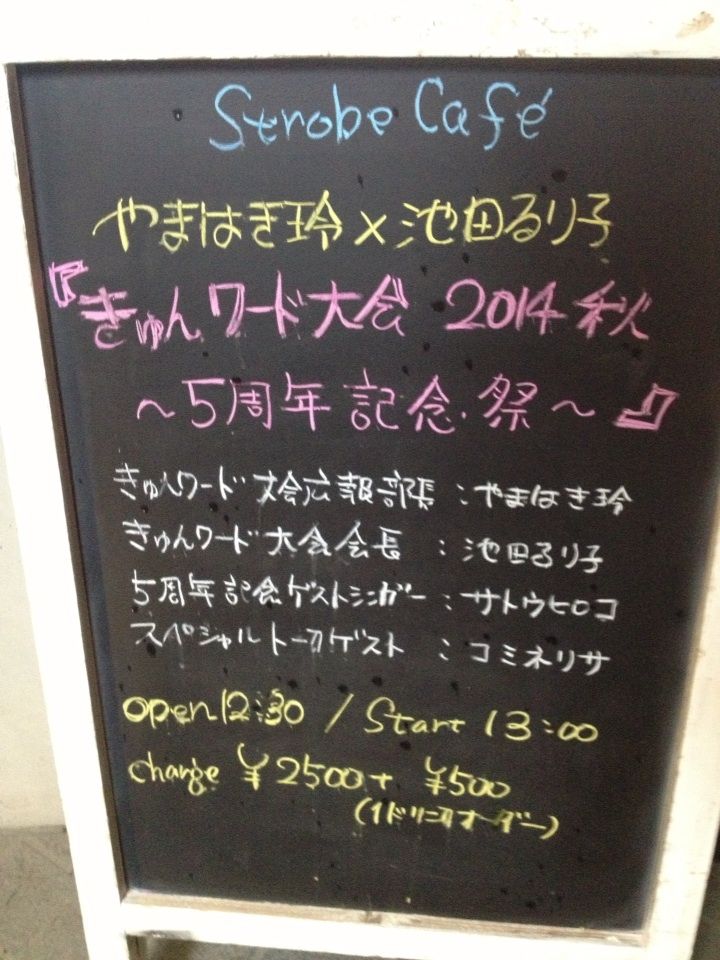 Strobe Café
やまはき玲×池田るり子
『きゅんワード大会 2014 秋
～5周年記念祭～』
きゅんワード大会広報部長：やまはき玲
きゅんワード大会会長：池田るり子
5周年記念ゲストシンガー：サトウヒロコ
スペシャルトークゲスト：コミネリサ
open 12:30 / Start 13:00
charge ¥2500+ ¥500
(1ドリンクオーダー)